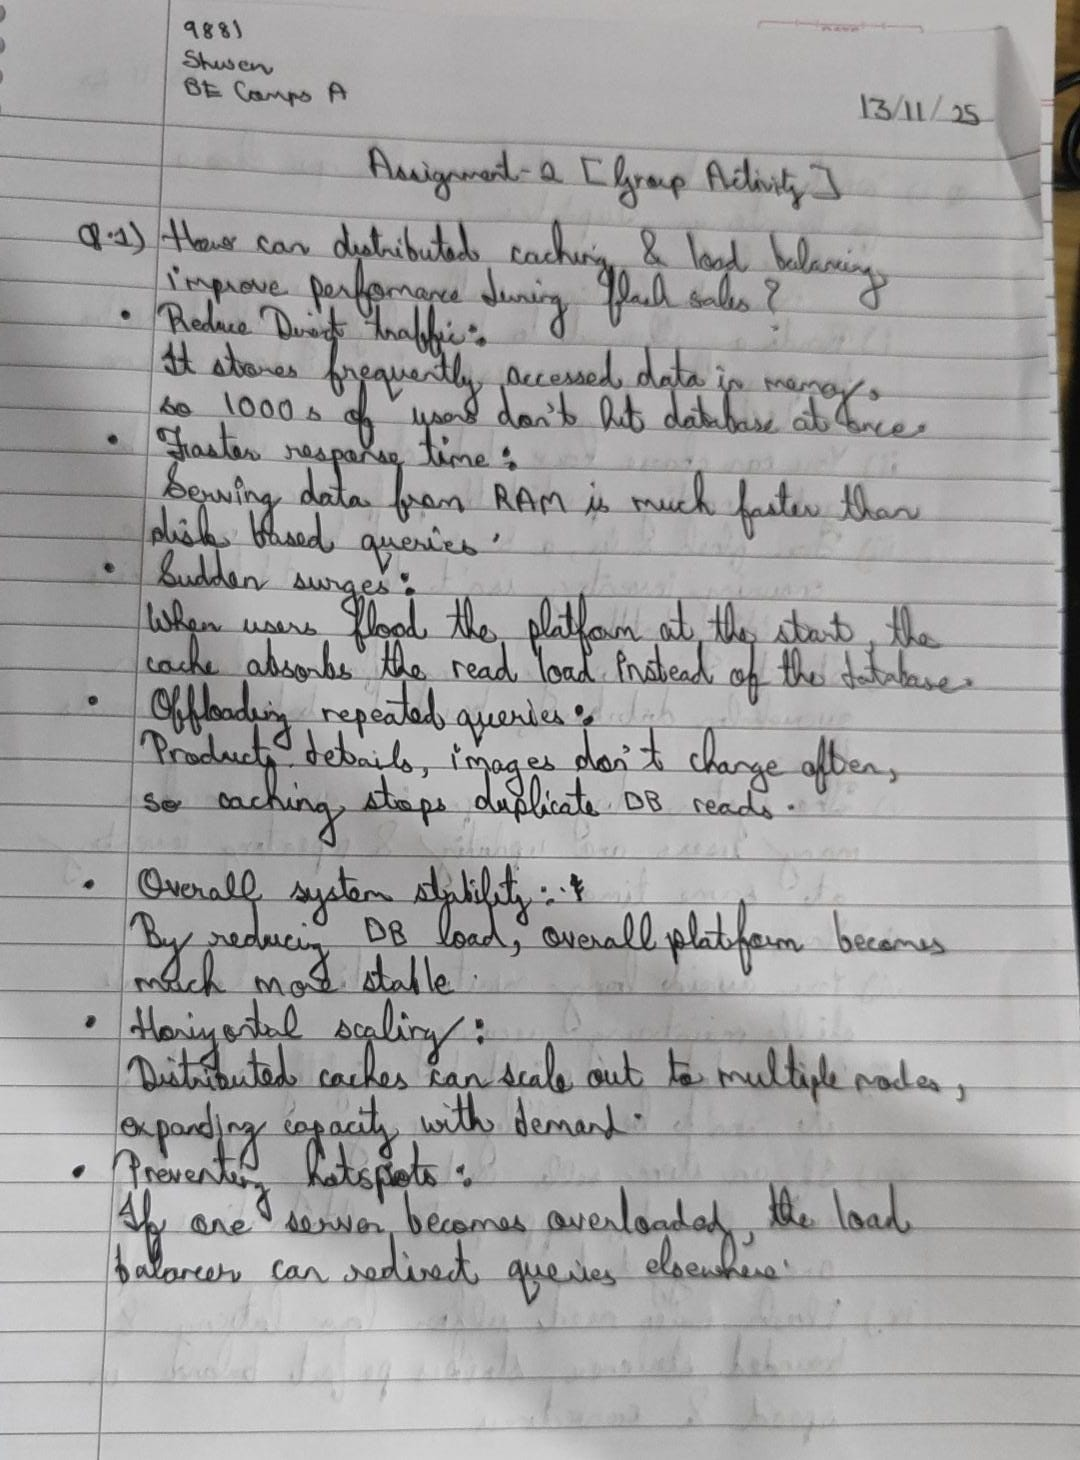 9881
Shwen
BE Comps A
13/11/25
Assignment-2 [Group Activity]
Q.1) How can distributed caching & load balancing
improve perfomance during flash sales?
• Reduce Direct traffic:
It stores frequently accessed data in memory,
so 1000s of users don't hit database at once.
• Faster response time:
Serving data from RAM is much faster than
disk based queries.
• Sudden surges:
When users flood the platform at the start, the
cache absorbs the read load instead of the database.
• Offloading repeated queries:
Product details, images don't change often,
so caching stops duplicate DB reads.
• Overall system stability:
By reducing DB load, overall platform becomes
much more stable.
• Horizontal scaling:
Distributed caches can scale out to multiple nodes,
expanding capacity with demand.
• Preventing hotspots:
If one server becomes overloaded, the load
balancer can redirect queries elsewhere.